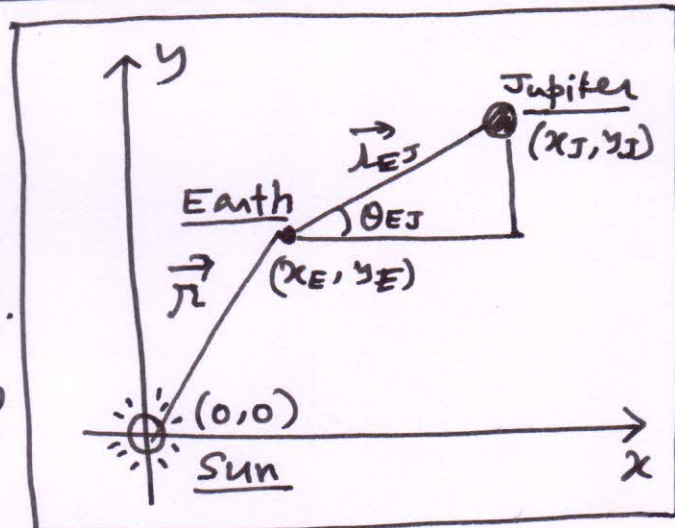 y
Jupiter
(x_J, y_J)
r_EJ
θ_EJ
Earth
(x_E, y_E)
r
(0,0)
Sun
x